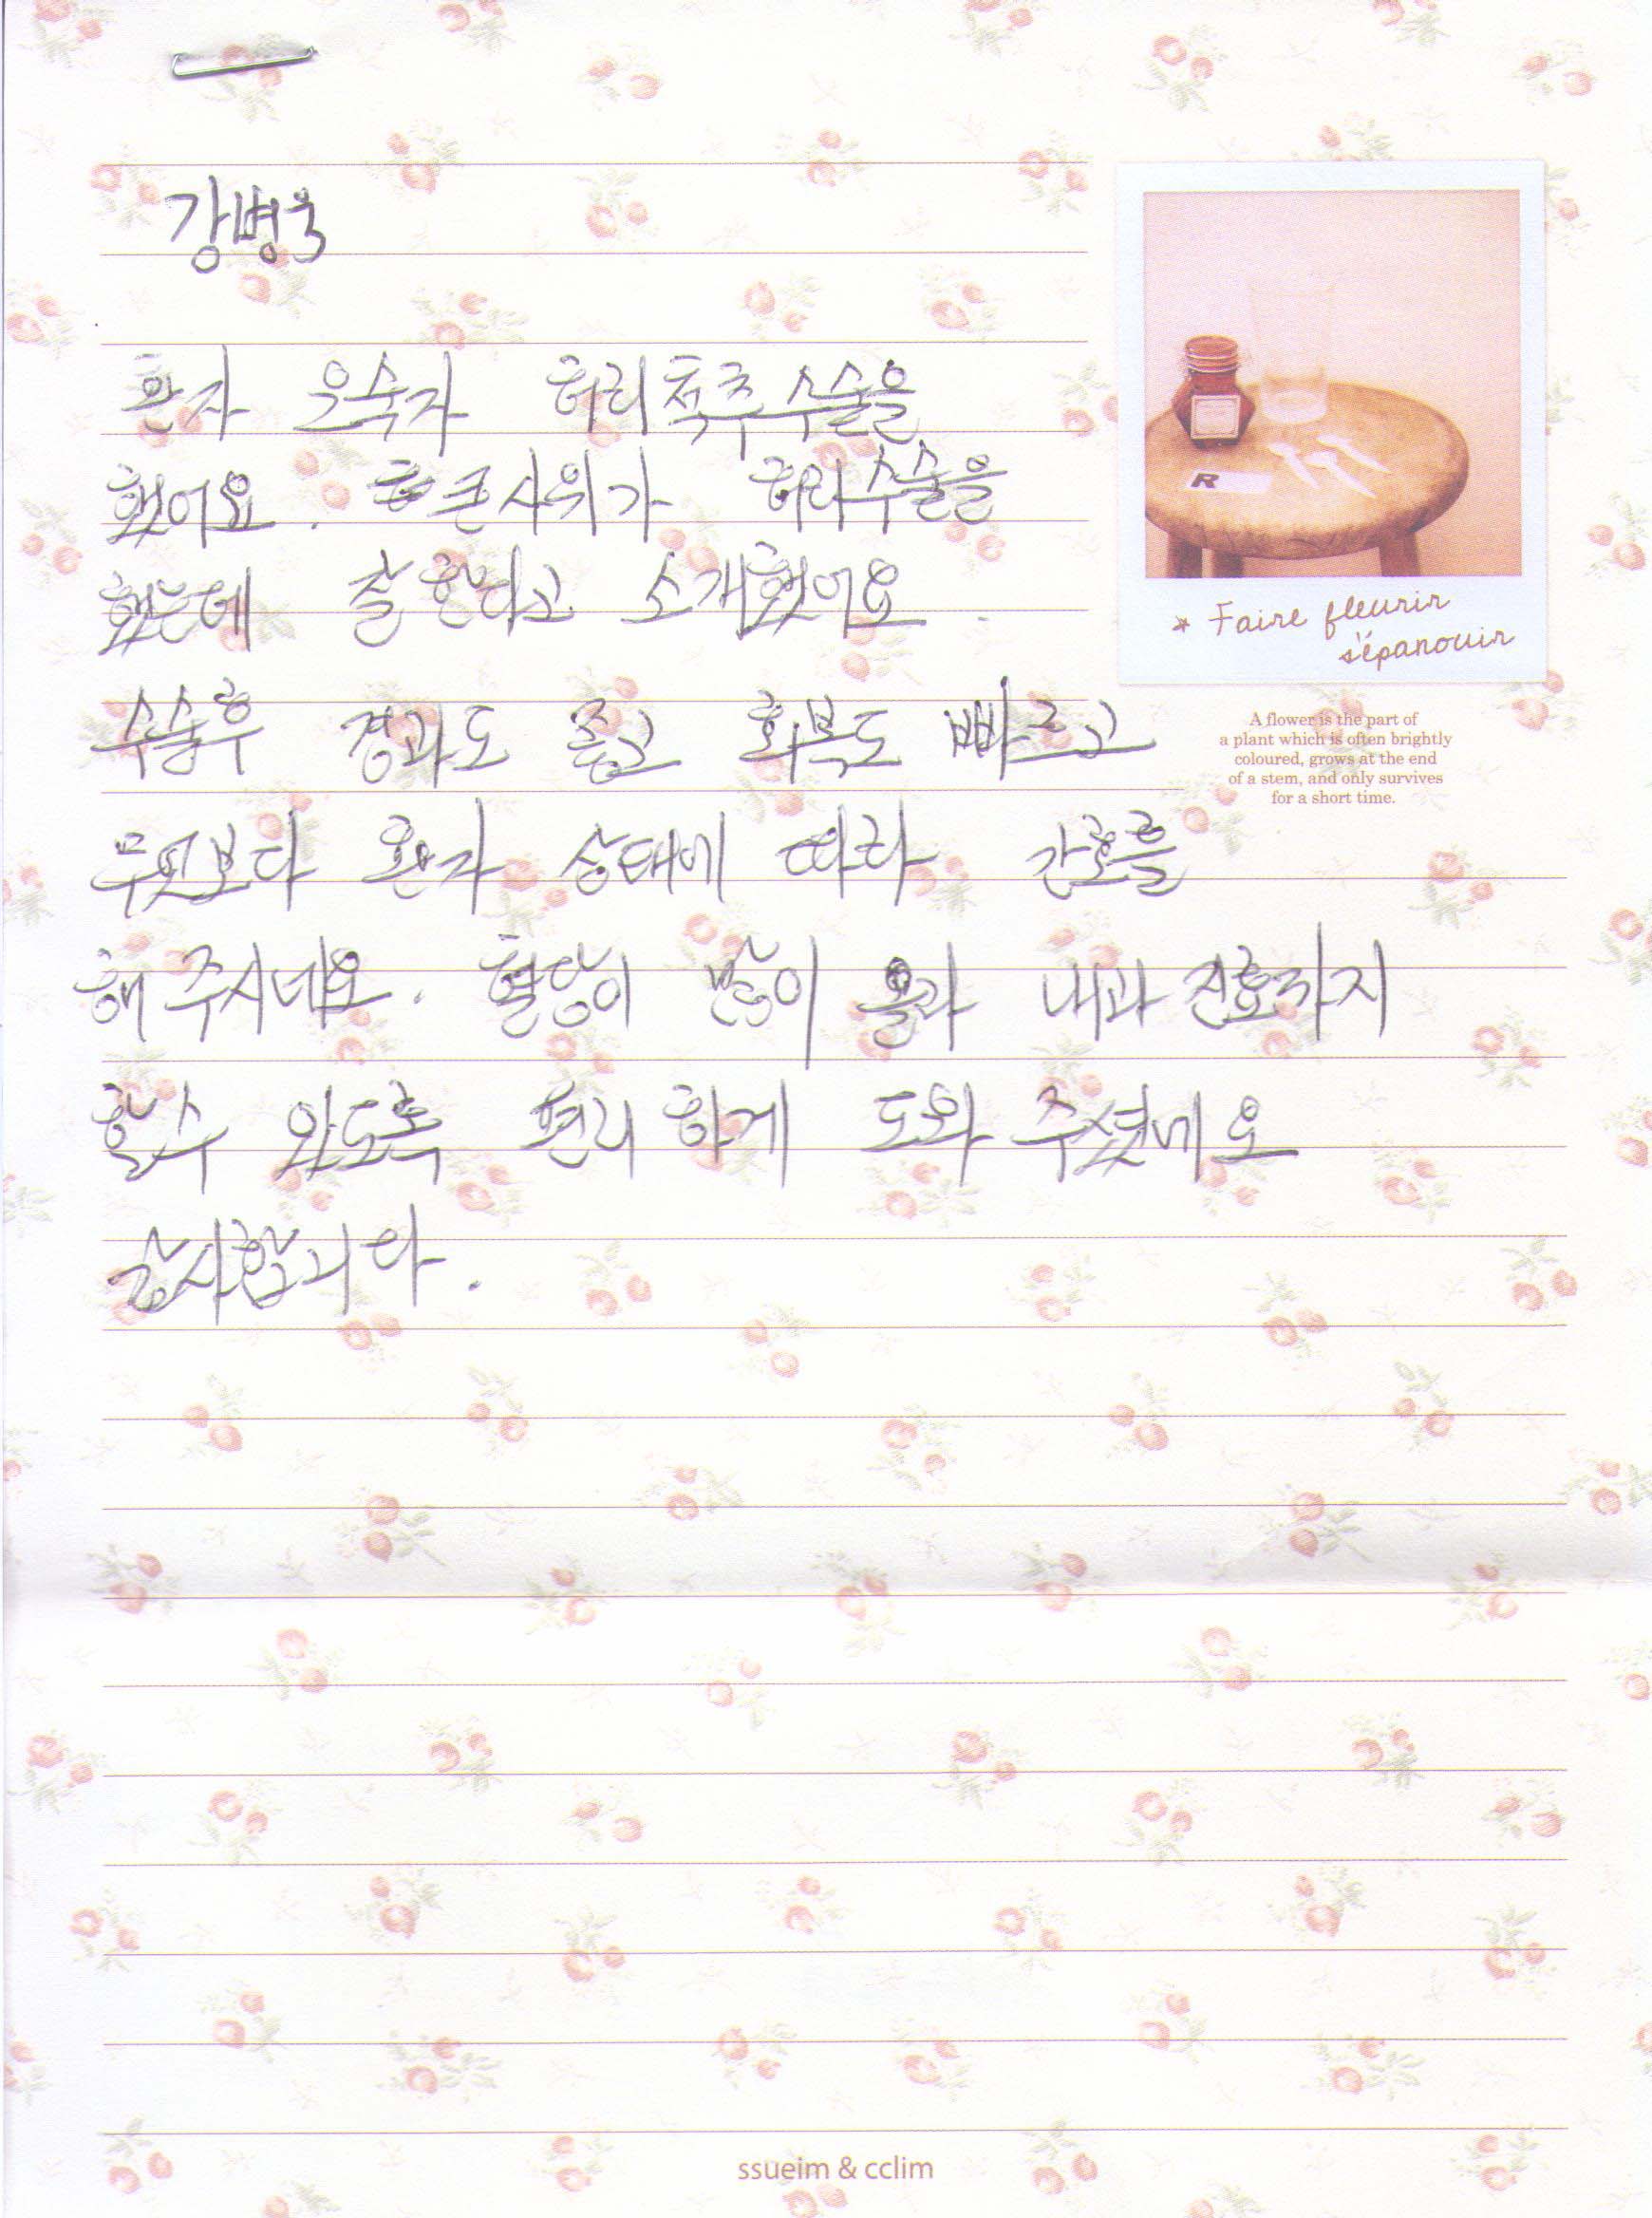 강병욱
환자 우숙자 허리척추수술을
했어요. 큰사위가 허리수술을
했는데 잘한다고 소개했어요.
수술후 경과도 좋고 회복도 빠르고
무엇보다 환자 상태에 따라 간호를
해 주시네요. 혈당이 많이 올라 내과 진료까지
할수 있도록 편리하게 도와 주셨네요
감사합니다.
R
* Faire fleurir
s'épanouir
A flower is the part of
a plant which is often brightly
coloured, grows at the end
of a stem, and only survives
for a short time.
ssueim & cclim